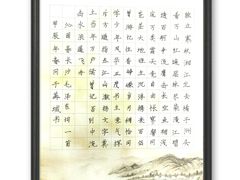 独立寒秋湘江北去橘子洲头
看万山红遍层林尽染漫江碧
透百舸争流鹰击长空鱼翔浅
底万类霜天竞自由怅寥廓问
苍茫大地谁主沉浮携来百侣
曾游忆往昔峥嵘岁月稠恰同
学少年风华正茂书生意气挥
斥方遒指点江山激扬文字粪
土当年万户侯曾记否到中流
击水浪遏飞舟
沁园春长沙毛泽东词一首
甲辰年春月于书